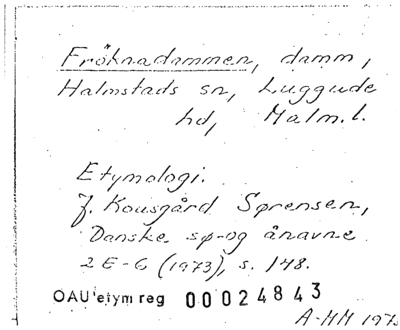 Fröknadammen, damm,
Halmstads sn, Luggude
hd, Malm.l.
Etymologi.
J. Kousgård Sørensen,
Danske sø- og ånavne
2 E-G (1973), s. 148.
OAU etym reg 00024843
A-MM 1973